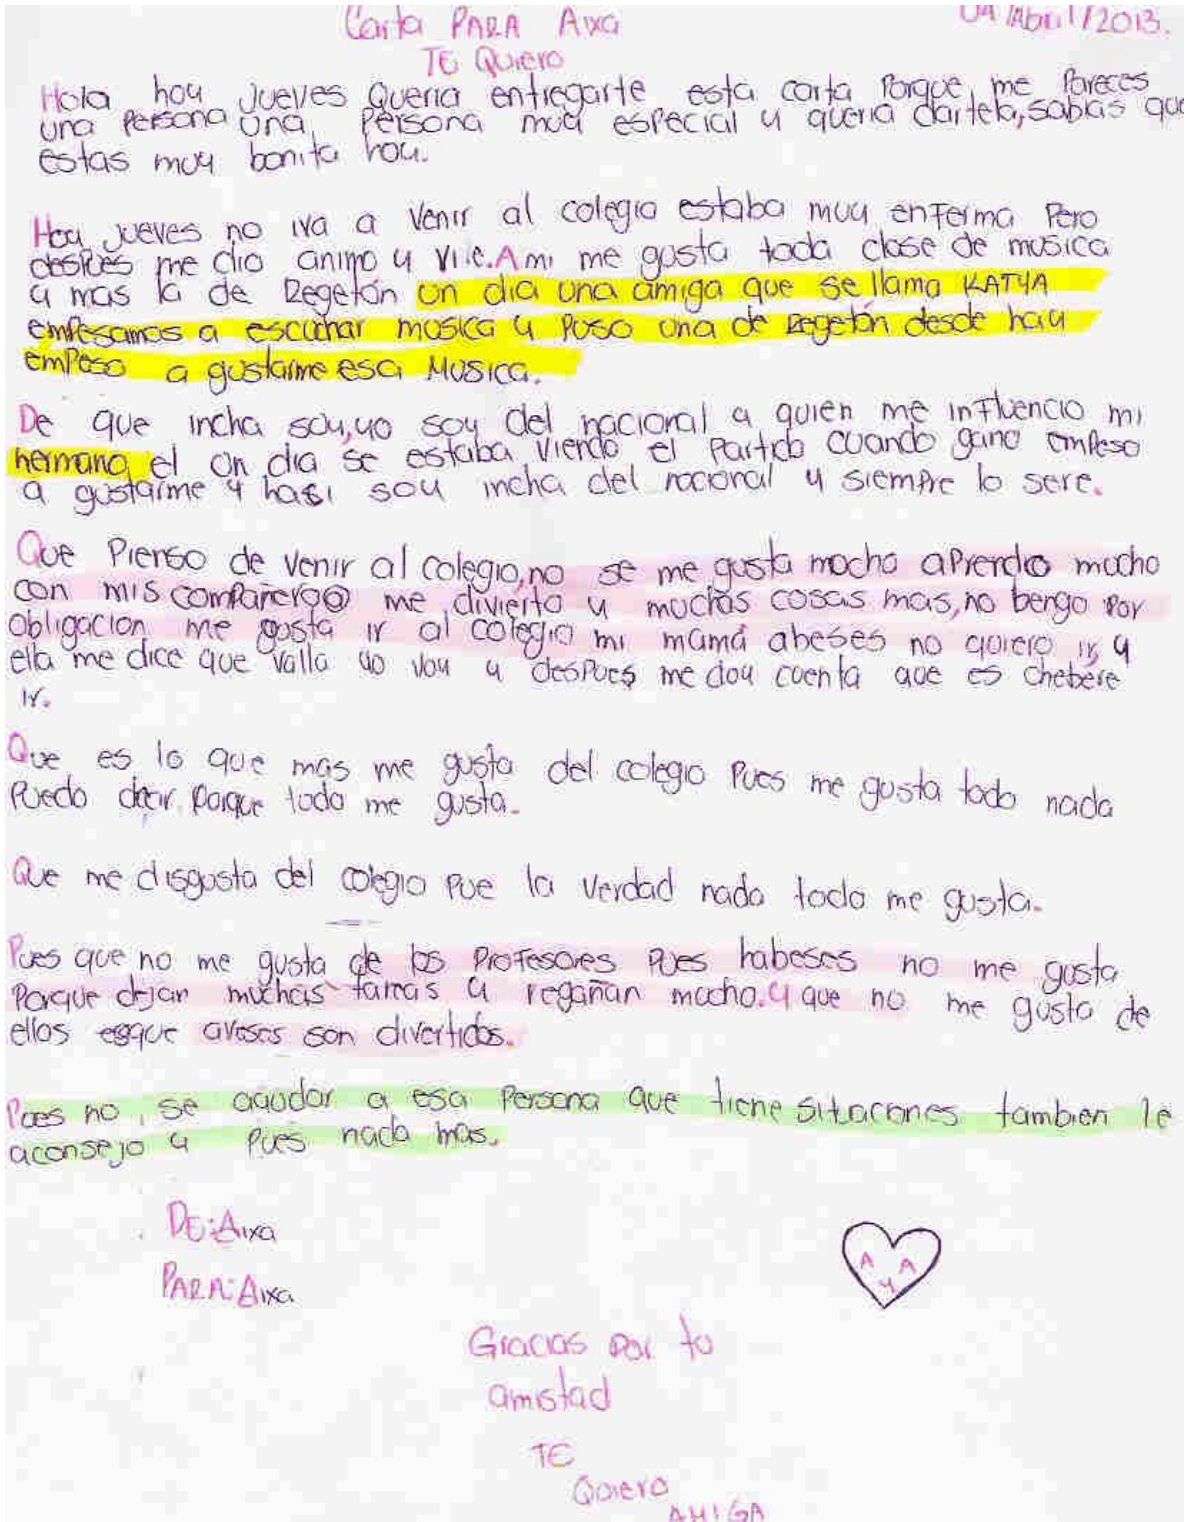 Carta PARA Aixa
04/Abril/2013.
TE Quiero
Hola hoy jueves queria entregarte esta carta Porque me Pareces
una Persona una Persona muy especial y queria dartela, sabias que
estas muy bonita hoy.
Hoy jueves no iva a venir al colegio estaba muy enferma Pero
despues me dio animo y vine. A mi me gusta toda clase de musica
y mas la de Regetón un dia una amiga que se llama KATYA
empesamos a escuchar musica y Puso una de Regetón desde hay
emPeso a gustarme esa Musica.
De que incha soy, yo soy del nacional a quien me influencio mi
hermano el un dia se estaba viendo el Partido cuando gano emPeso
a gustarme y hasi soy incha del nacional y siemPre lo sere.
Que Pienso de venir al colegio, no se me gusta mucho aPrendo mucho
con mis compañer@ me divierto y muchas cosas mas, no bengo Por
obligacion me gusta ir al colegio mi mamá abeses no quiero ir, y
ella me dice que valla yo voy y desPues me doy cuenta que es chebere
ir.
Que es lo que mas me gusta del colegio Pues me gusta todo nada
Puedo decir Porque todo me gusta.
Que me disgusta del colegio Pue la verdad nada todo me gusta.
Pues que no me gusta de los Profesores Pues habeses no me gusta
Porque dejan muchas tareas y regañan mucho. y que no me gusta de
ellos esque aveses son divertidos.
Pues no, se ayudar a esa Persona que tiene situaciones tambien le
aconsejo y Pues nada mas.
DE: Aixa
PARA: Aixa
A y A
Gracias Por tu
amistad
TE
Quiero
AMIGA